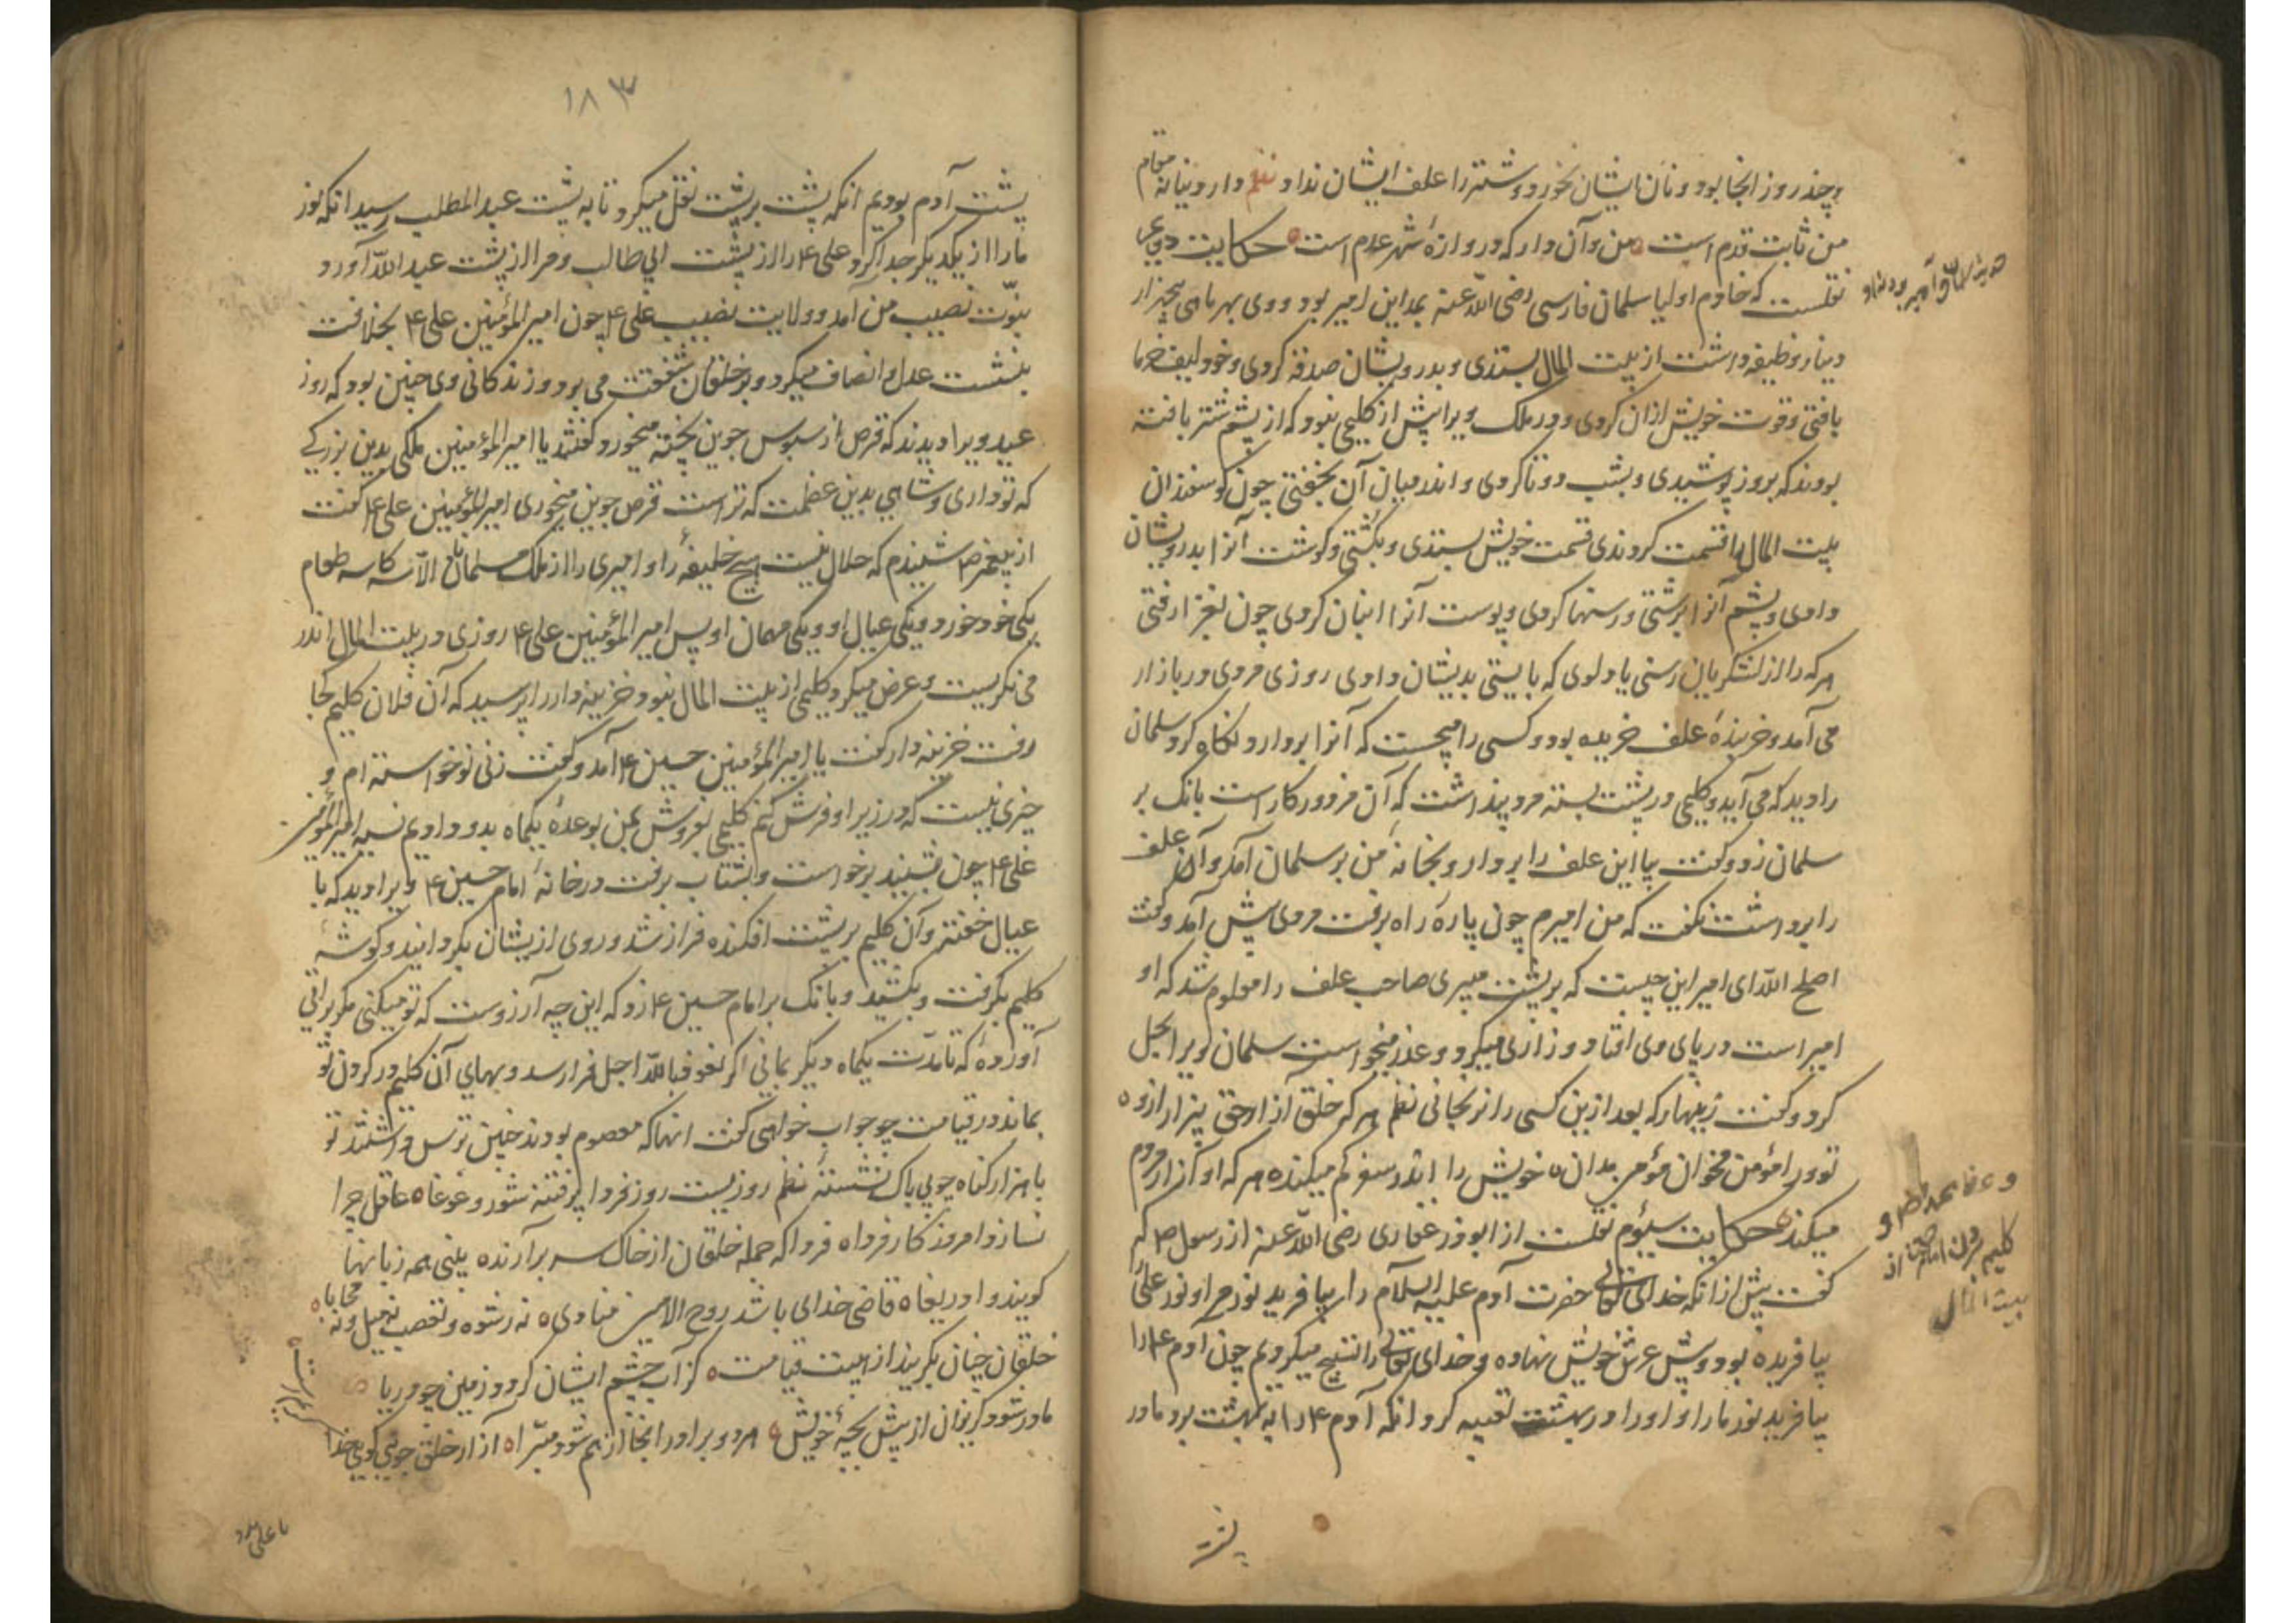 و چند روز انجا بود و نان ایشان نخورد و شتر را علف ایشان نداد نظم دار دنیا نه مقام
من ثابت قدم است من و آن دار که دروازهٔ شهر عدم است حکایت دویم
نقلست که خادم اولیا سلمان فارسی رضی اللّه عنه بمداین امیر بود و وی بهر ماهی پنجهزار
دینار وظیفه داشت از بیت المال بستدی و بدرویشان صدقه کردی و خود لیف خرما
بافتی و قوت خویش ازان کردی و در ملک ویرا بیش از کلیمی نبود که از پشم شتر بافته
بودند که بروز پوشیدی و بشب دوتا کردی و اندر میان آن بخفتی چون کوسفندان
بیت المال را قسمت کردندی قسمت خویش بستدی و بکشتی و کوشت آنرا بدرویشان
دادی و پشم آنرا برشتی و رسنها کردی و پوست آنرا انبان کردی چون بغزا رفتی
هر که را از لشکریان رسنی یا دلوی که بایستی بدیشان دادی روزی مردی در بازار
می آمد و خربنده علف خریده بود و کسی را میجست که آنرا بردارد نکاه کرد سلمان
را دید که می آید و کلیمی در پشت بسته مرد پنداشت که آن مزدور کار است بانک بر
سلمان زد و کفت بیا این علف را بردار و بخانهٔ من بر سلمان آمد و آن علف
را برداشت نکفت که من امیرم چون پارهٔ راه برفت مردی پیش آمد و کفت
اصلح اللّه ای امیر این چیست که بر پشت میبری صاحب علف را معلوم شد که او
امیر است در پای وی افتاد و زاری میکرد و عذر میخواست سلمان ویرا بحل
کرد و کفت زینهار که بعد ازین کسی را نرنجانی نظم هر که خلق آزارد حق بیزار ازو
تو ورا مؤمن مخوان مؤمن مدان خویش را اندر سقر کم میکند هر که او آزار مردم
میکند حکایت سیوم نقلست از ابوذر غفاری رضی اللّه عنه از رسول ص که
کفت پیش ازانکه خدای تعالی حضرت آدم علیه السلام را بیافرید نور من و نور علی
بیافریده بود و پیش عرش خویش نهاده و خدای تعالی را تسبیح میکردیم چون آدم ع را
بیافرید نور ما را و او را در بهشت تعبیه کرد انکه آدم ع را به بهشت برد ما در
پشت
و
کلیم امام از
بیت المال
۱۸۳
پشت آدم بودیم انکه پشت بر پشت نقل میکرد تا به پشت عبد المطلب رسید انکه نور
ما را از یکدیکر جدا کرد علی ع را از پشت ابی طالب و مرا از پشت عبد اللّه آورد
نبوّت نصیب من آمد و ولایت نصیب علی ع چون امیر المؤمنین علی ع بخلافت
بنشست عدل و انصاف میکرد و بر خلقان شفقت می برد و زندکانی وی چنین بود که روز
عید ویرا دیدند که قرص از سبوس جوین پخته میخورد کفتند یا امیر المؤمنین ملکی بدین بزرکی
که تو داری و شاهی بدین عظمت که تراست قرص جوین میخوری امیر المؤمنین علی ع کفت
از پیغمبر ص شنیدم که حلال نیست هیچ خلیفهٔ را و امیری را از ملک مسلمانان الّا سه کاسه طعام
یکی خود خورد و یکی عیال او و یکی مهمان او پس امیر المؤمنین علی ع روزی در بیت المال اندر
می نکریست و عرض میکرد کلیمی از بیت المال نبود خزینه دار را پرسید که آن فلان کلیم کجا
رفت خزینه دار کفت یا امیر المؤمنین حسین ع آمد و کفت زنی نو خواسته ام و
چیزی نیست که در زیر او فرش کنم کلیمی بفروش بمن بوعدهٔ یکماه بدو دادیم نسیه امیر المؤمنین
علی ع چون بشنید برخواست و بشتاب برفت در خانهٔ امام حسین ع ویرا دید که با
عیال خفته و آن کلیم بر پشت افکنده فراز شد و روی ازیشان بکردانید و کوشهٔ
کلیم بکرفت و بکشید و بانک بر امام حسین ع زد که این چه آرزوست که تو میکنی مکر براتی
آوردهٔ که تا مدّت یکماه دیکر بمانی اکر نعوذ باللّه اجل فرا رسد و بهای آن کلیم در کردن تو
بماند در قیامت چو جواب خواهی کفت انها که معصوم بودند چنین ترس داشتند تو
با هزار کناه چو بی باک نشستهٔ نظم روزیست روز فردا پر فتنه شور و غوغا عاقل چرا
نسازد امروز کار فردا فردا که جمله خلقان از خاک سر برآرند بینی همه زبانها
کویند وا دریغا قاضی خدای باشد روح الامین منادی نه رشوه و تعصب نه میل و نه محابا
خلقان چنان بکریند از هیبت قیامت کز آب چشم ایشان کردد زمین چو دریا
مادر شود کریزان از پیش بچهٔ خویش هر دو برادر انجا از هم شود مبّرا آزار خلق جویی کویی خدا
یا علی مدد